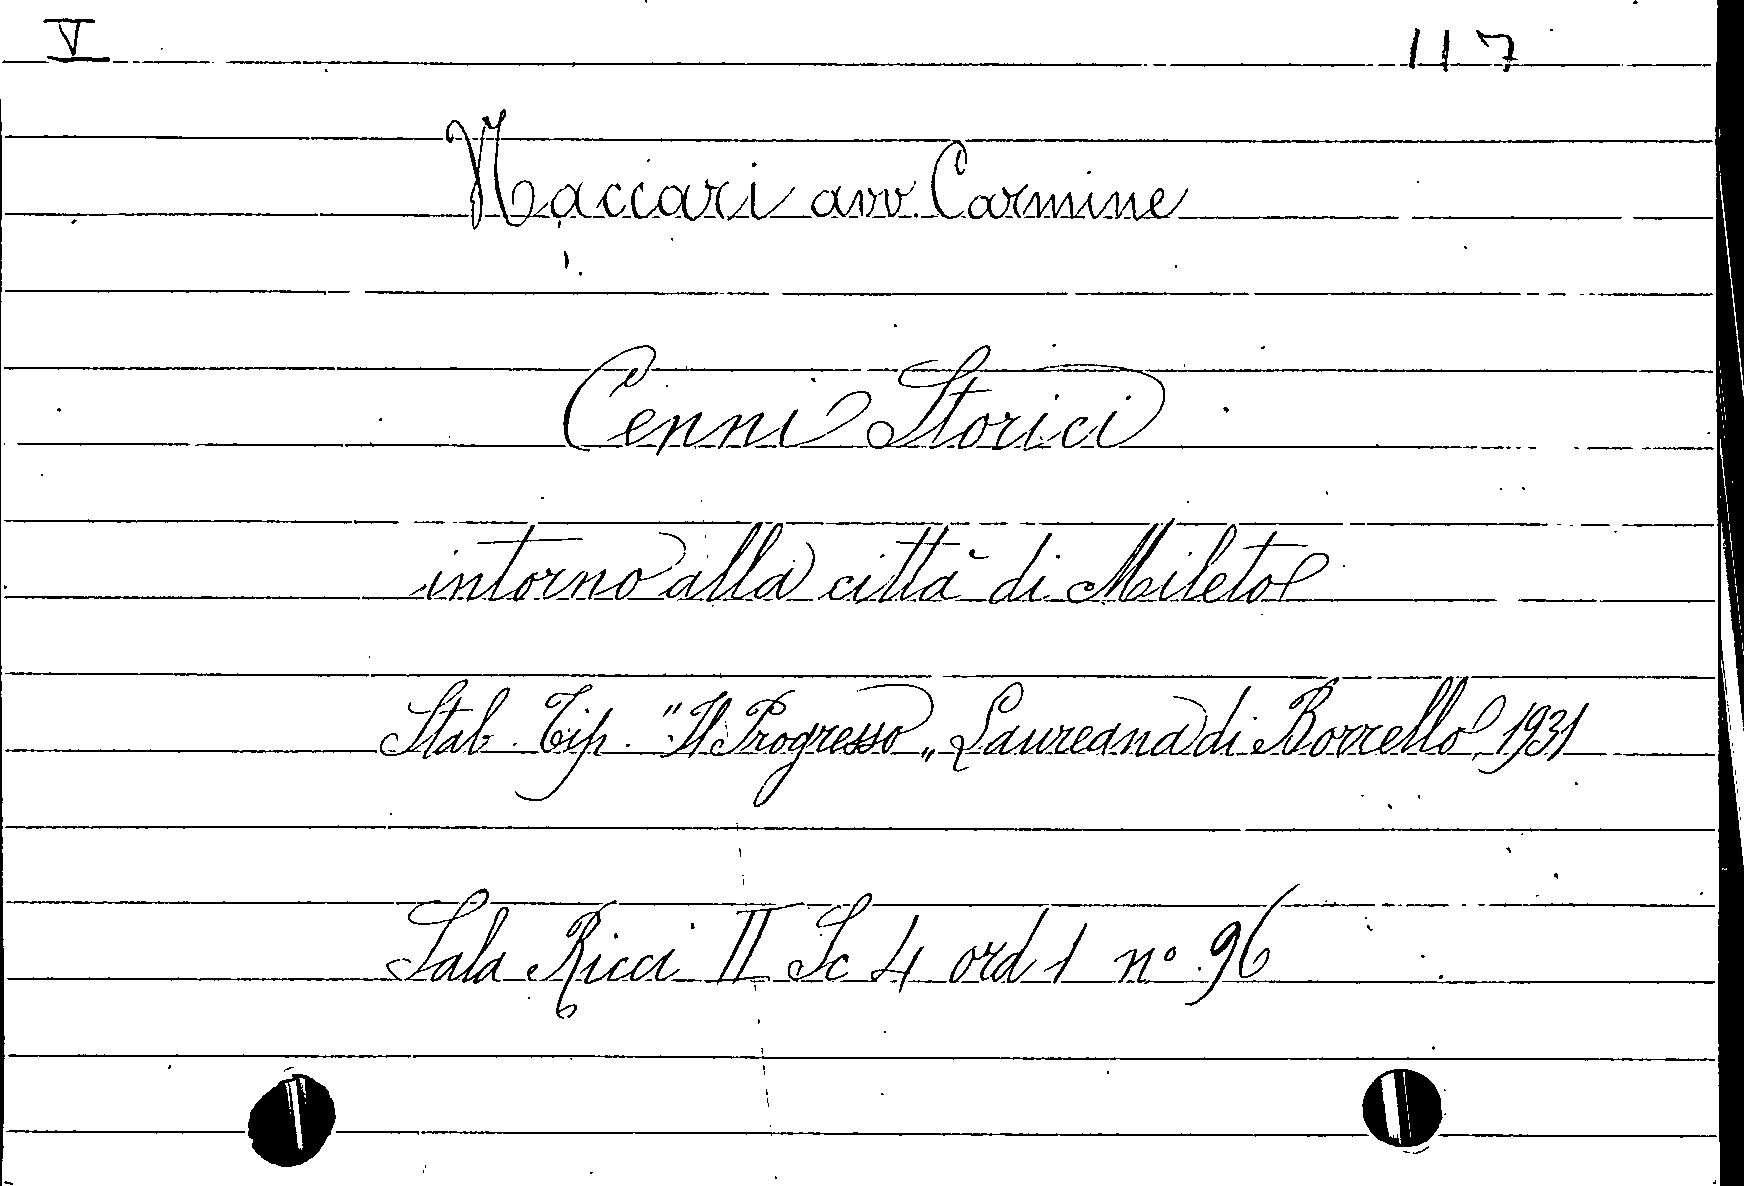 V 117
Naccari avv. Carmine
Cenni Storici
intorno alla città di Mileto
Stab. Tip. "Il Progresso„ Laureana di Borrello 1931
Sala Ricci II Sc 4 ord 1 n° 96